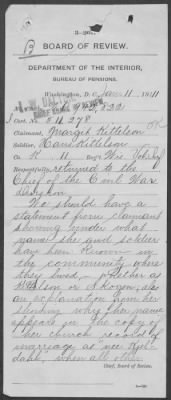 3-241.
BOARD OF REVIEW.
DEPARTMENT OF THE INTERIOR,
BUREAU OF PENSIONS.
Washington, D.C. Jan 11, 1911
No. 943,822
Cert. No. 511,278
Claimant, Margit Kittelson OK
Soldier, Hans Kittelson
Co. K 11 Reg't Wis. Vol. Inf.
Respectfully returned to the
Chief of the Civil War
Division
We should have a
statement from claimant
showing under what
name she and soldier
have been known in
the community where
they lived, whether as
or also
an explanation from her
showing why her name
appears in the copy of
her church record of
marriage as "nee
dahl, when all other
Chief, Board of Review.